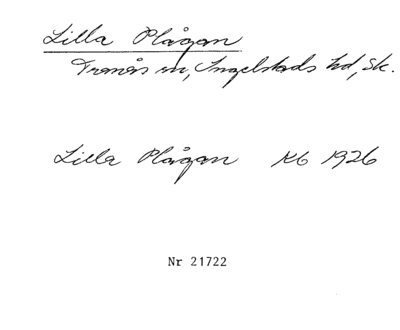 Lilla Plågan
Tranås sn, Ingelstads hd, Sk.
Lilla Plågan Kb 1926
Nr 21722